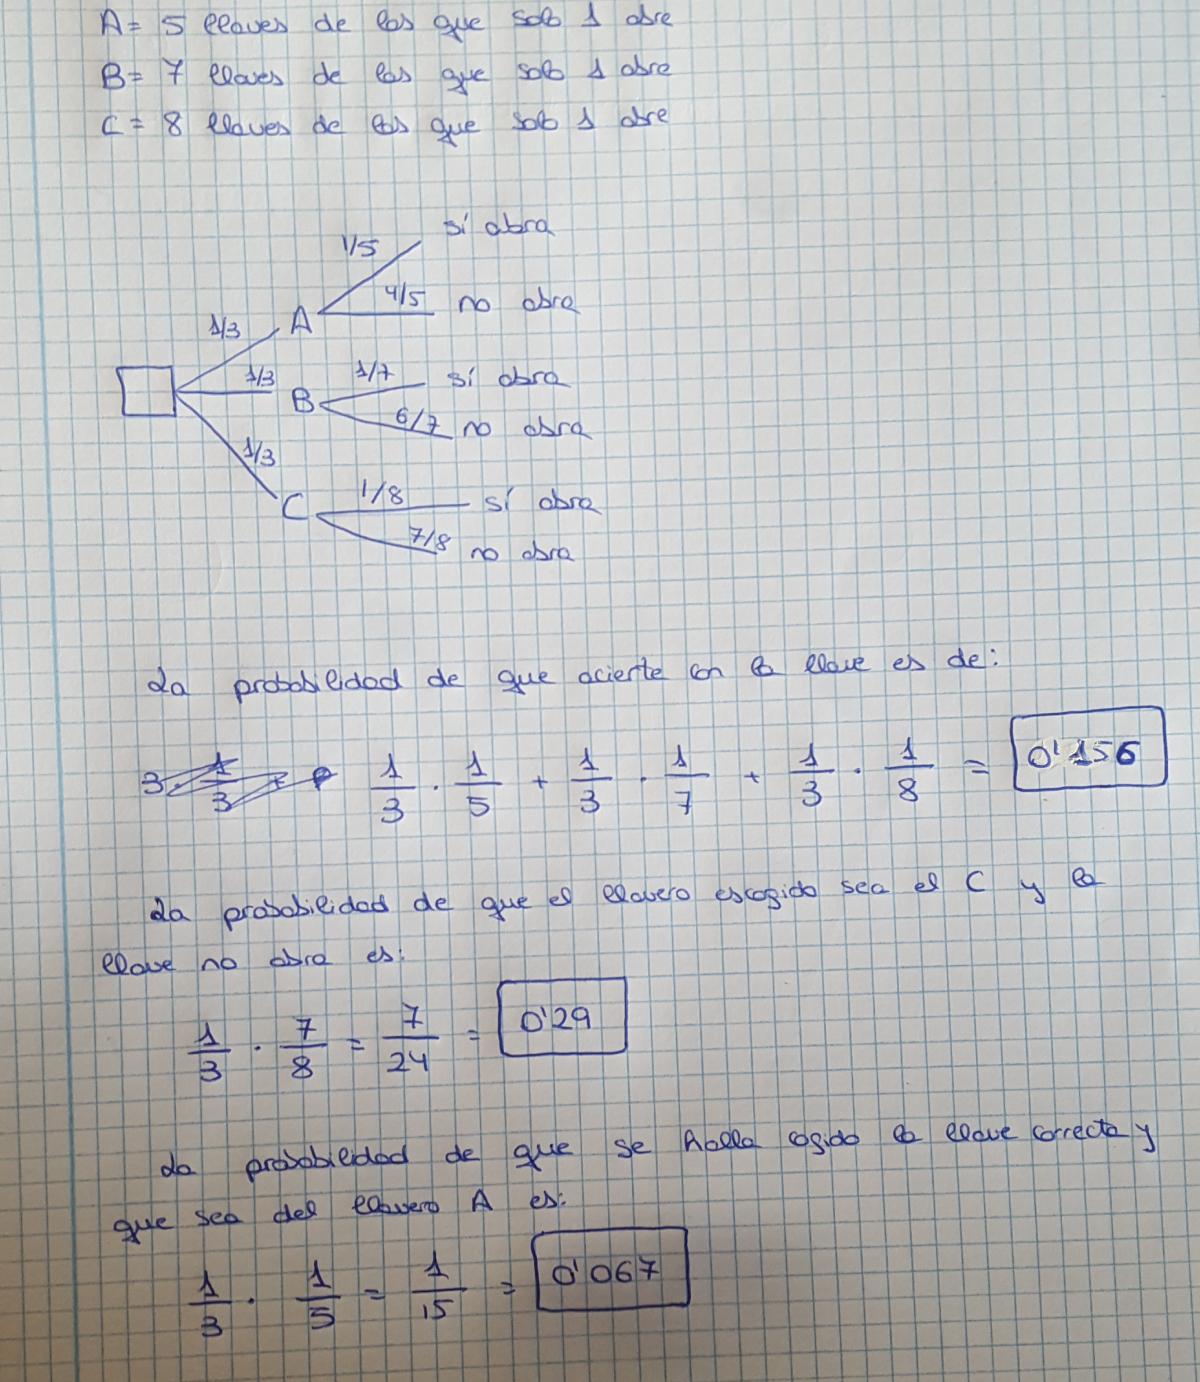 A = 5 llaves de las que solo 1 abre
B = 7 llaves de las que solo 1 abre
C = 8 llaves de las que solo 1 abre
1/5 sí abra
1/3 A 4/5 no abra
1/3 B 1/7 sí abra
6/7 no abra
1/3 C 1/8 sí abra
7/8 no abra
La probabilidad de que acierte con la llave es de:
1/3 · 1/5 + 1/3 · 1/7 + 1/3 · 1/8 = 0'156
La probabilidad de que el llavero escogido sea el C y la
llave no abra es:
1/3 · 7/8 = 7/24 = 0'29
La probabilidad de que se halla cogido la llave correcta y
que sea del llavero A es:
1/3 · 1/5 = 1/15 = 0'067